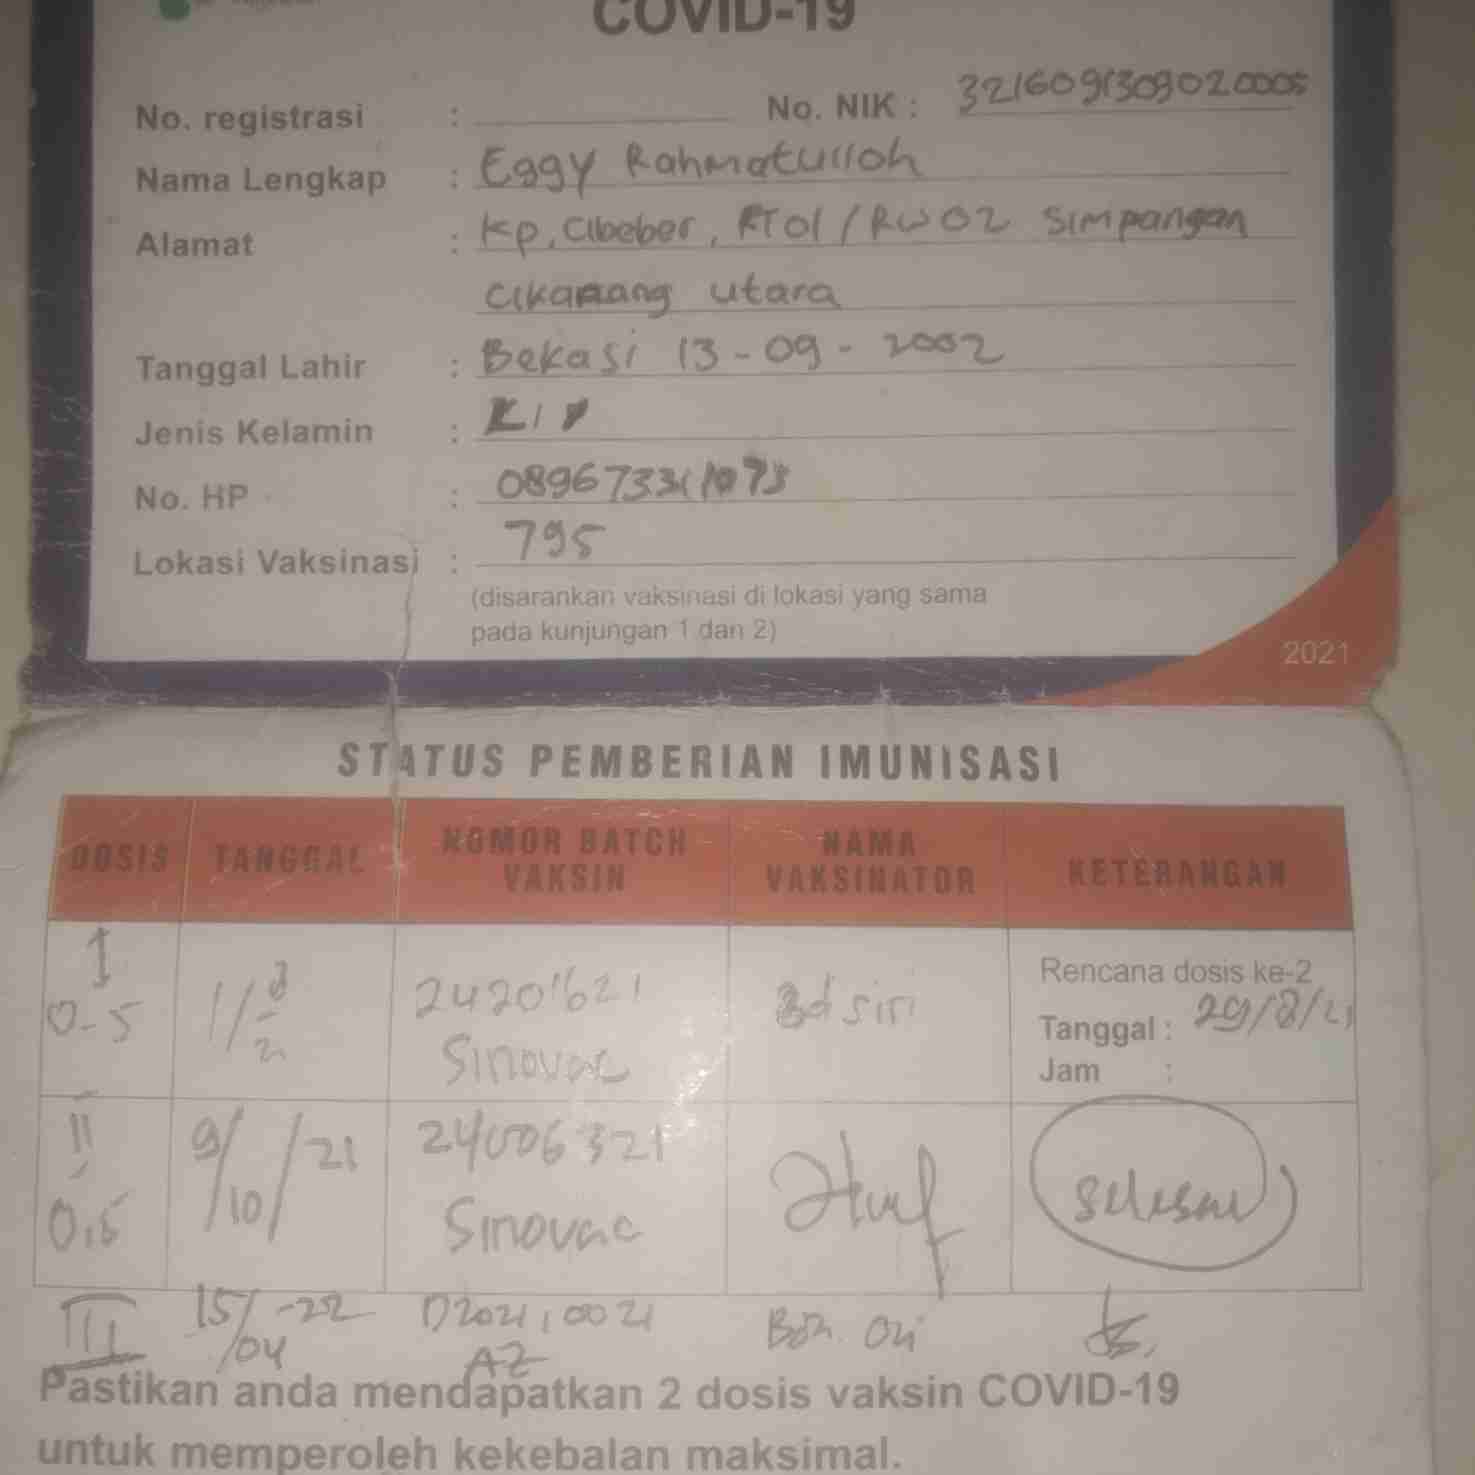 COVID-19
No. registrasi : No. NIK : 3216091309020005
Nama Lengkap : Eggy Rahmatulloh
Alamat : Kp. Cibeber, RT01/RW02 Simpangan
Cikarang utara
Tanggal Lahir : Bekasi 13-09-2002
Jenis Kelamin :
No. HP :
Lokasi Vaksinasi : 795
(disarankan vaksinasi di lokasi yang sama
pada kunjungan 1 dan 2)
2021
STATUS PEMBERIAN IMUNISASI
DOSIS TANGGAL NOMOR BATCH VAKSIN NAMA VAKSINATOR KETERANGAN
I
0-5
Sinovac
Bd siri
Rencana dosis ke-2
Tanggal : 29/8/21
Jam :
II
0,5
9/10/21
24006321
Sinovac
Selesai
III 15/04-22 D2021,0021
AZ
Pastikan anda mendapatkan 2 dosis vaksin COVID-19
untuk memperoleh kekebalan maksimal.